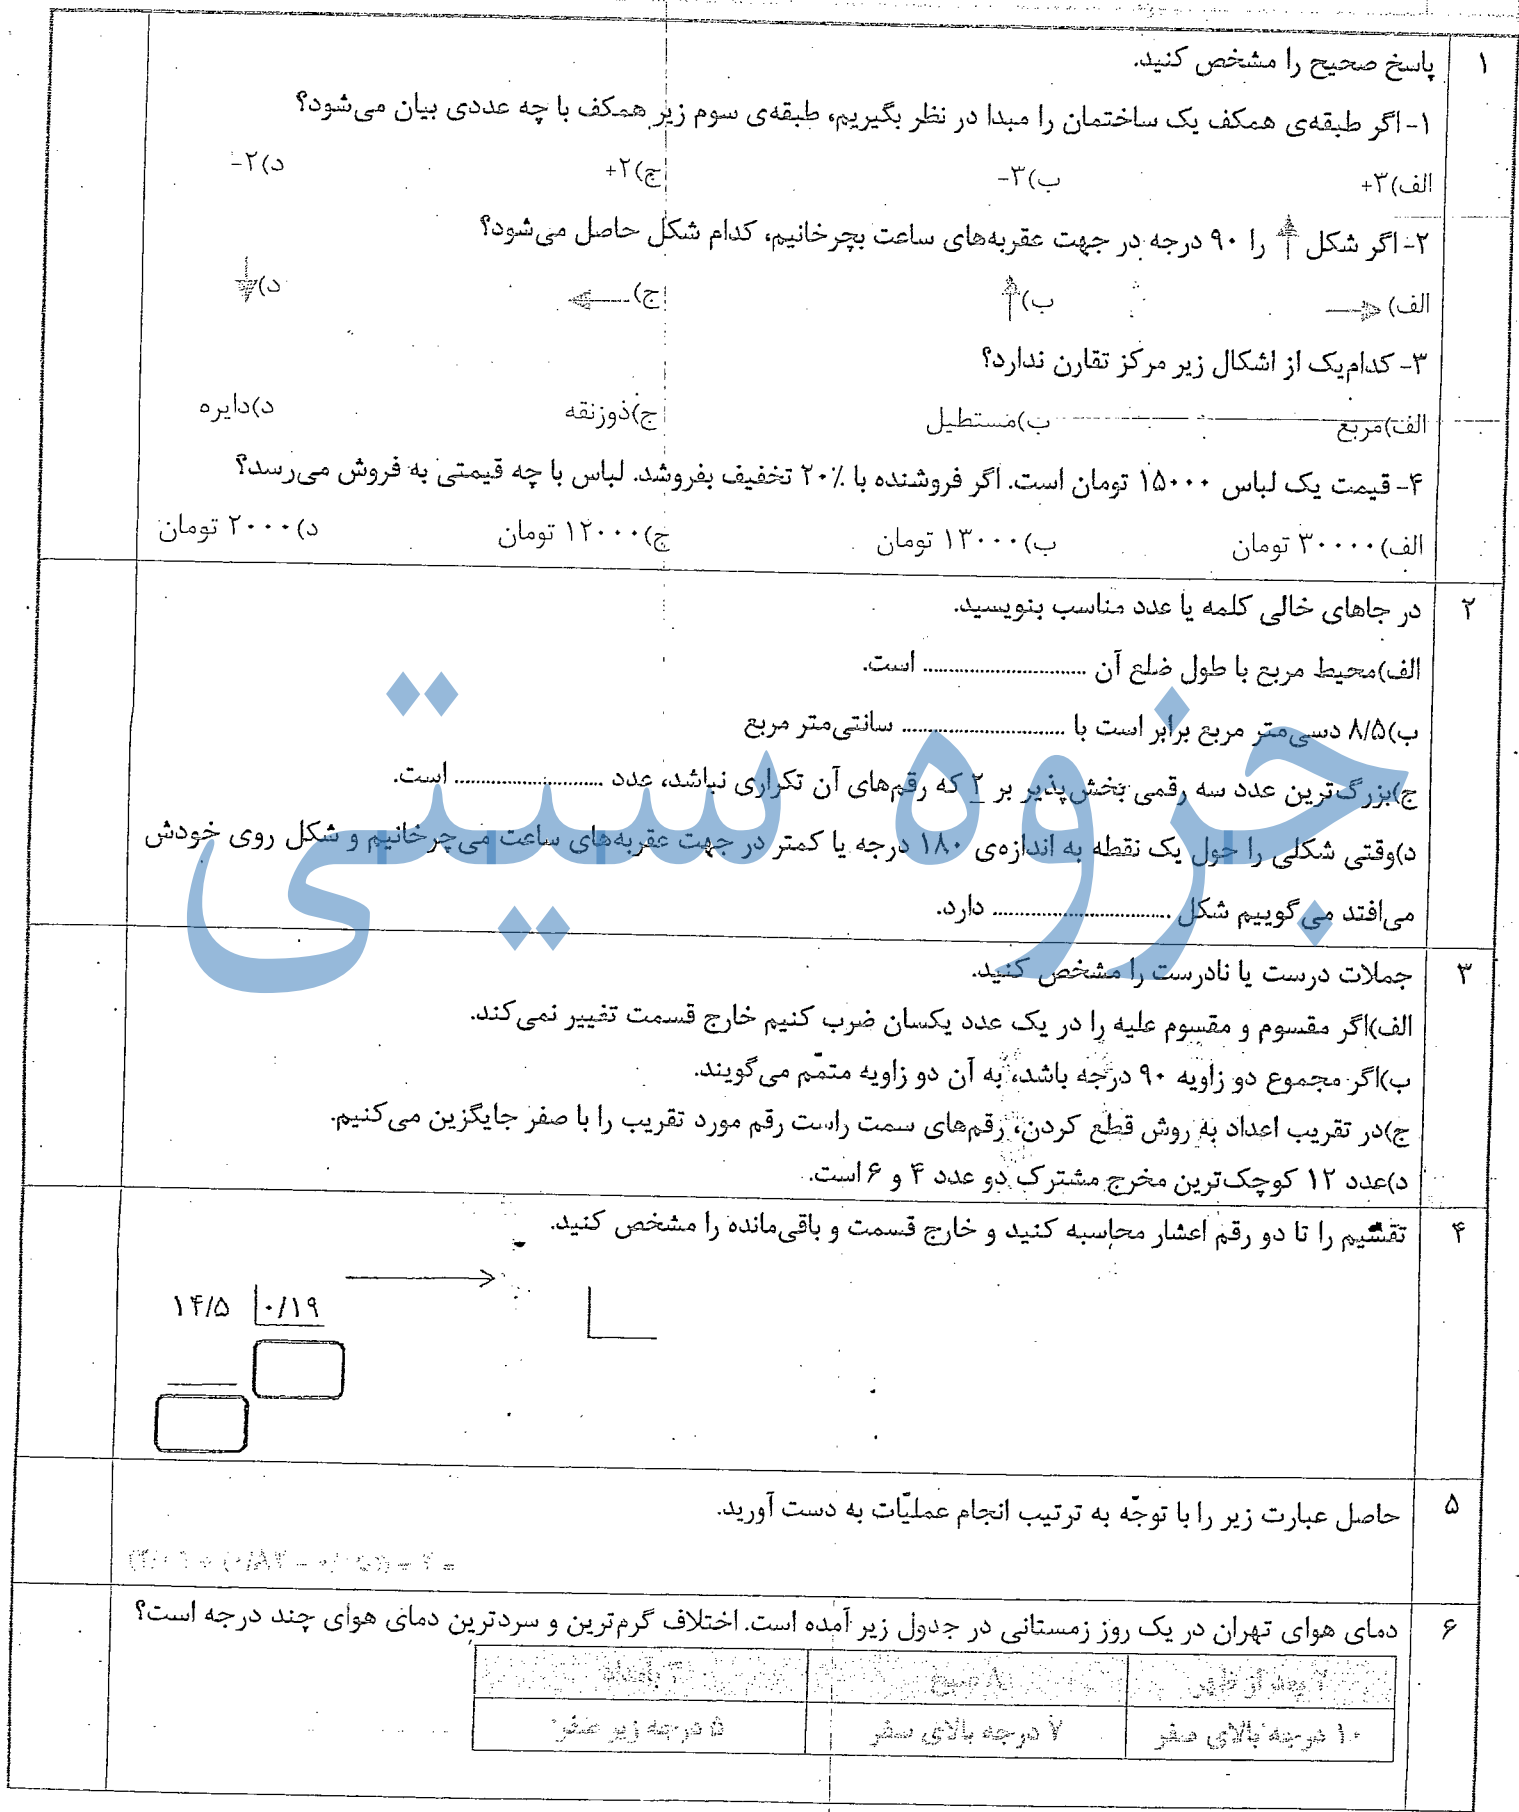 ۱
پاسخ صحیح را مشخص کنید.
۱- اگر طبقه‌ی همکف یک ساختمان را مبدا در نظر بگیریم، طبقه‌ی سوم زیر همکف با چه عددی بیان می‌شود؟
الف)۳+ ب)۳- ج)۲+ د)۲-
۲- اگر شکل را ۹۰ درجه در جهت عقربه‌های ساعت بچرخانیم، کدام شکل حاصل می‌شود؟
الف) ب) ج) د)
۳- کدام‌یک از اشکال زیر مرکز تقارن ندارد؟
الف)مربع ب)مستطیل ج)ذوزنقه د)دایره
۴- قیمت یک لباس ۱۵۰۰۰ تومان است. اگر فروشنده با ۲۰٪ تخفیف بفروشد. لباس با چه قیمتی به فروش می‌رسد؟
الف)۳۰۰۰۰ تومان ب)۱۳۰۰۰ تومان ج)۱۲۰۰۰ تومان د)۲۰۰۰ تومان
۲
در جاهای خالی کلمه یا عدد مناسب بنویسید.
الف)محیط مربع با طول ضلع آن .............................. است.
ب)۸/۵ دسی‌متر مربع برابر است با .............................. سانتی‌متر مربع
ج)بزرگ‌ترین عدد سه رقمی بخش‌پذیر بر ۲ که رقم‌های آن تکراری نباشد، عدد .............................. است.
د)وقتی شکلی را حول یک نقطه به اندازه‌ی ۱۸۰ درجه یا کمتر در جهت عقربه‌های ساعت می‌چرخانیم و شکل روی خودش
می‌افتد می‌گوییم شکل .............................. دارد.
جزوه سیتی
۳
جملات درست یا نادرست را مشخص کنید.
الف)اگر مقسوم و مقسوم علیه را در یک عدد یکسان ضرب کنیم خارج قسمت تغییر نمی‌کند.
ب)اگر مجموع دو زاویه ۹۰ درجه باشد، به آن دو زاویه متمّم می‌گویند.
ج)در تقریب اعداد به روش قطع کردن، رقم‌های سمت راست رقم مورد تقریب را با صفر جایگزین می‌کنیم.
د)عدد ۱۲ کوچک‌ترین مخرج مشترک دو عدد ۴ و ۶ است.
۴
تقسیم را تا دو رقم اعشار محاسبه کنید و خارج قسمت و باقی‌مانده را مشخص کنید.
۱۴/۵ ۰/۱۹
۵
حاصل عبارت زیر را با توجّه به ترتیب انجام عملیّات به دست آورید.
۶
دمای هوای تهران در یک روز زمستانی در جدول زیر آمده است. اختلاف گرم‌ترین و سردترین دمای هوای چند درجه است؟
۲ بعد از ظهر ۸ صبح بامداد
۱۰ درجه بالای صفر ۷ درجه بالای صفر ۵ درجه زیر صفر